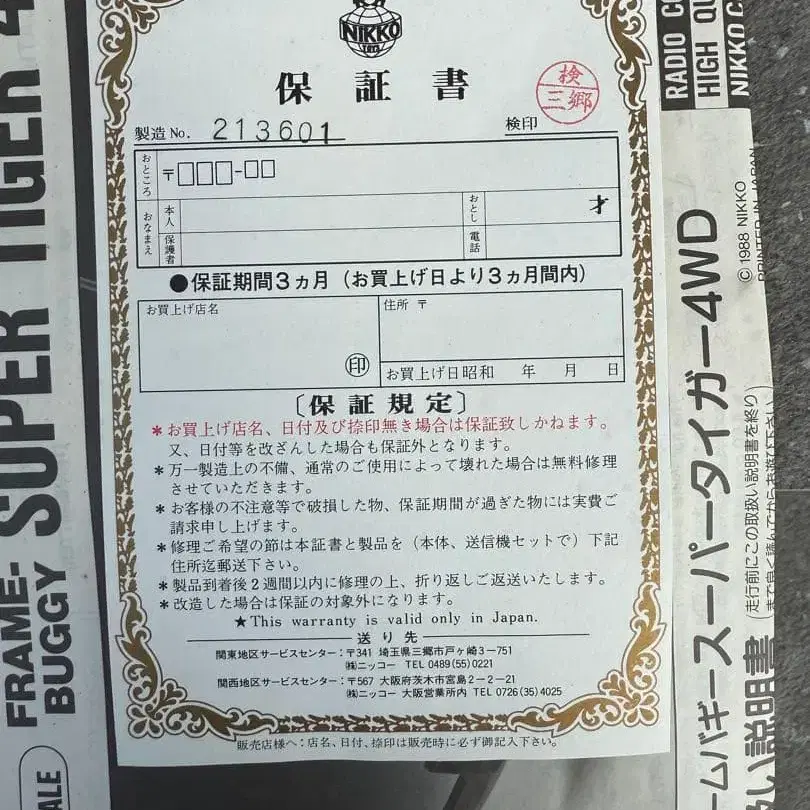 NIKKO
保証書
検
三郷
製造 No. 213601
検印
おところ
〒□□□-□□
おなまえ
本人
おとし
才
保護者
電話
●保証期間3ヵ月(お買上げ日より3ヵ月間内)
お買上げ店名
印
住所 〒
お買上げ日昭和 年 月 日
〔保証規定〕
*お買上げ店名、日付及び捺印無き場合は保証致しかねます。
又、日付等を改ざんした場合も保証外となります。
*万一製造上の不備、通常のご使用によって壊れた場合は無料修理
させていただきます。
*お客様の不注意等で破損した物、保証期間が過ぎた物には実費ご
請求申し上げます。
*修理ご希望の節は本証書と製品を(本体、送信機セットで)下記
住所迄郵送下さい。
*製品到着後2週間以内に修理の上、折り返しご返送いたします。
*改造した場合は保証の対象外になります。
★This warranty is valid only in Japan.
送り先
関東地区サービスセンター:〒341 埼玉県三郷市戸ヶ崎3-751
㈱ニッコー TEL 0489(55)0221
関西地区サービスセンター:〒567 大阪府茨木市宮島2-2-21
㈱ニッコー 大阪営業所内 TEL 0726(35)4025
販売店様へ:店名、日付、捺印は販売時に必ず御記入下さい。
FRAME-
BUGGY
SUPER TIGER 4
ALE
RADIO CO
HIGH QU
NIKKO C
© 1988 NIKKO
PRINTED IN JAPAN
ームバギースーパータイガー4WD
い説明書
(走行前にこの取扱い説明書を必ず